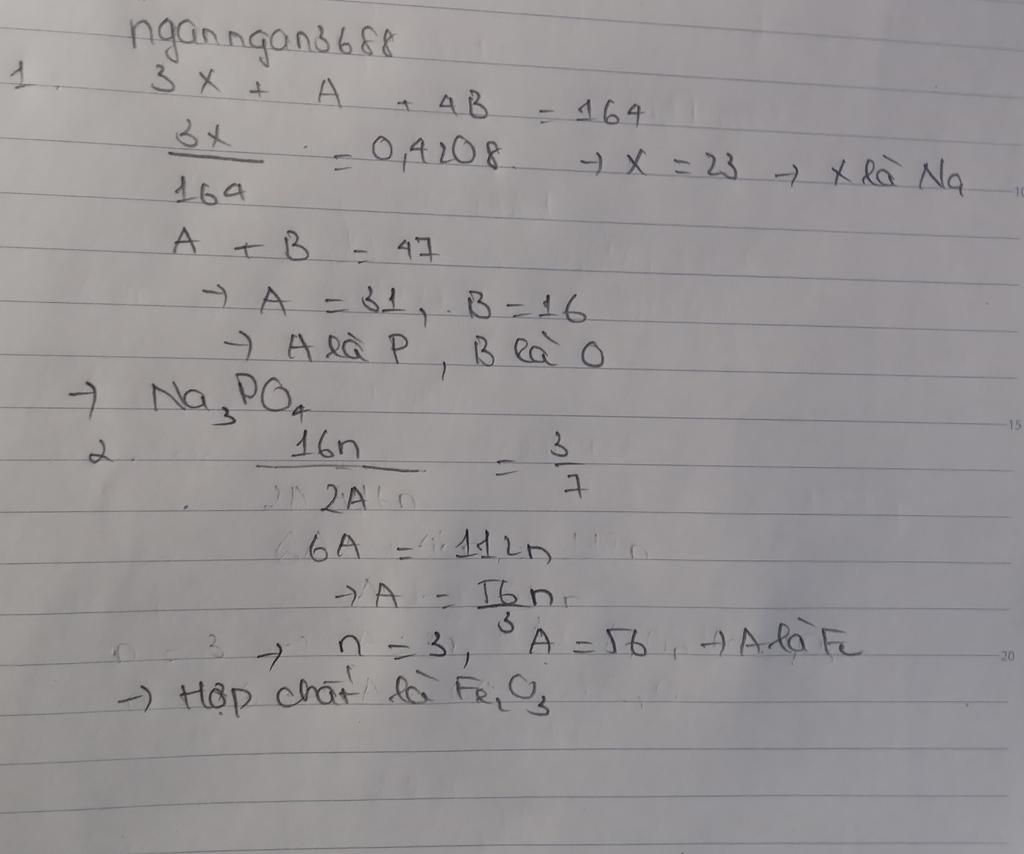 nganngan3688
1. 3X + A + 4B = 164
3X / 164 = 0,4208 → X = 23 → X là Na
A + B = 47
→ A = 31, B = 16
→ A là P, B là O
→ Na₃PO₄
2. 16n / 2A = 3 / 7
6A = 112n
→ A = 56n / 3
→ n = 3, A = 56, → A là Fe
→ Hợp chất là Fe₂O₃
10
15
20